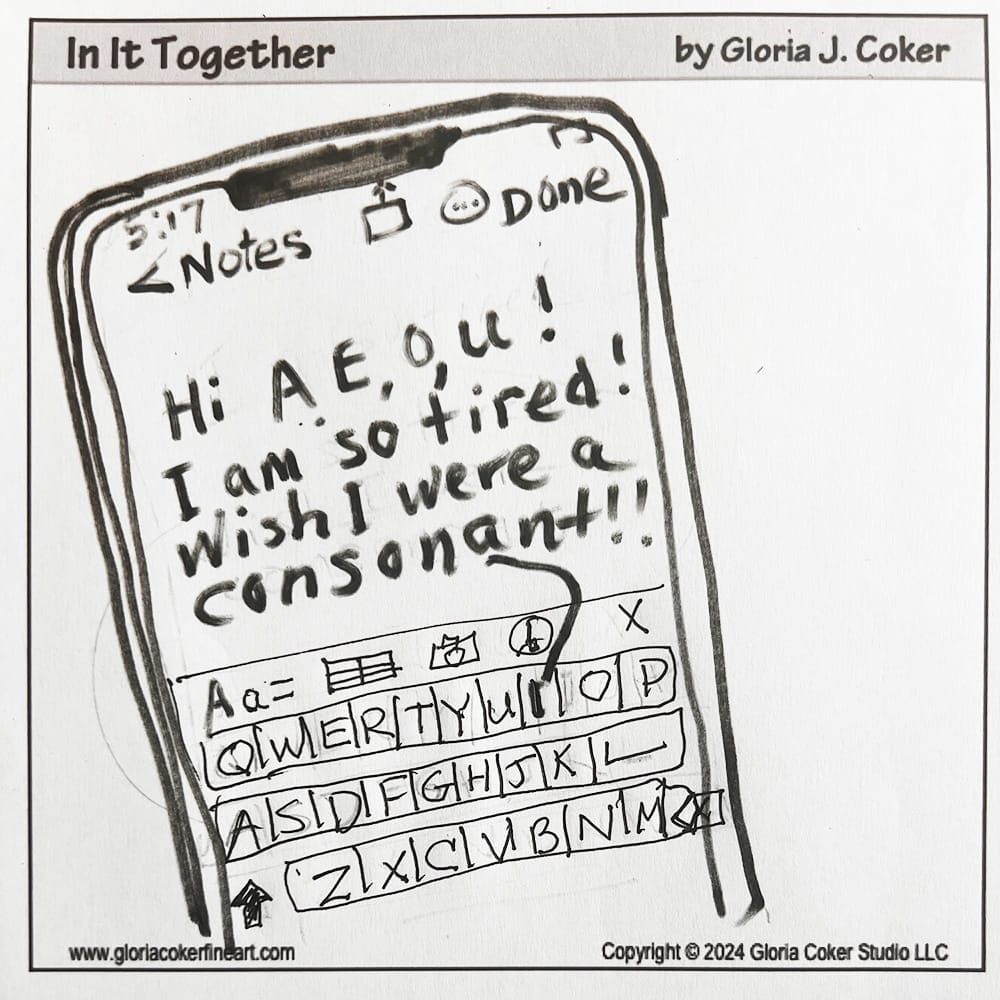 In It Together
by Gloria J. Coker
5:17
<Notes
Done
Hi A E, O, U!
I am so tired!
Wish I were a
consonant!!
X
Aa=
Q W E R T Y U I O P
A S D F G H J K L
Z X C V B N M X
www.gloriacokerfineart.com
Copyright © 2024 Gloria Coker Studio LLC